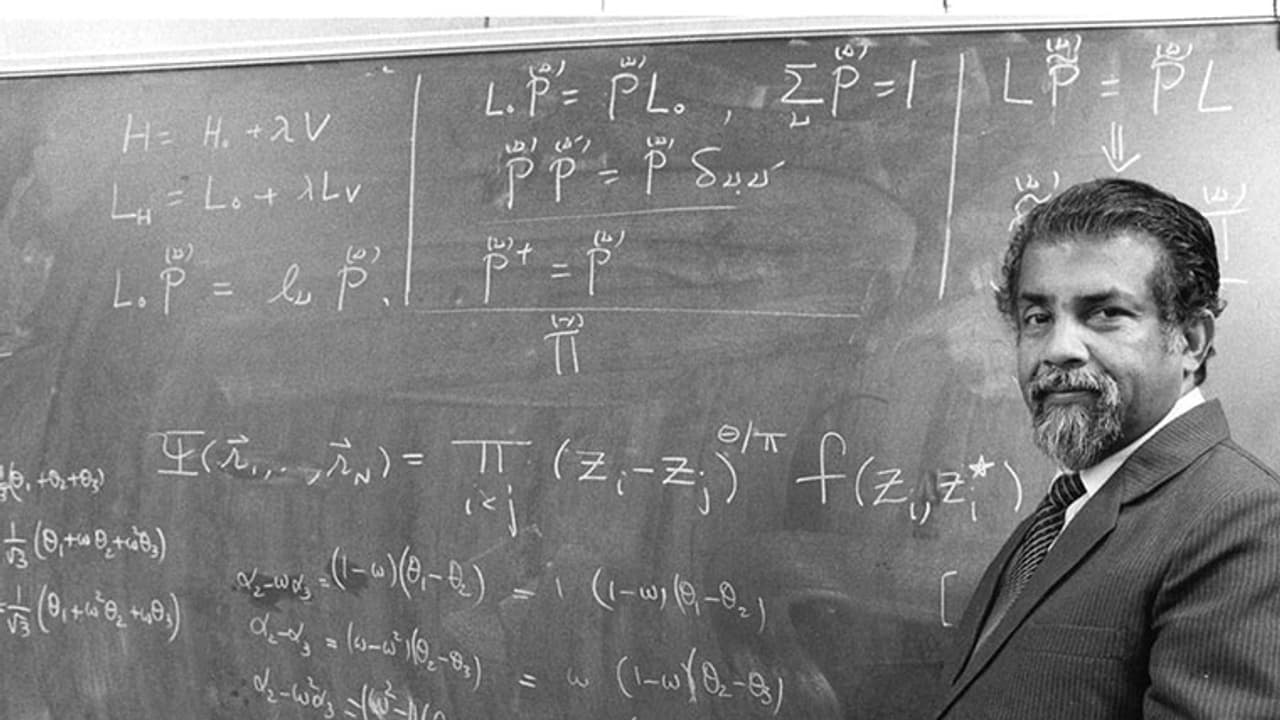 H = H₀ + λV
L_H = L₀ + λL_V
L₀ P^(ν) = l_ν P^(ν).
L₀ P^(ν) = P^(ν) L₀ , Σ_ν P^(ν) = 1
P^(ν) P^(ν′) = P^(ν) δ_νν′
P^(ν)† = P^(ν)
Π^(ν)
L P̃^(ν) = P̃^(ν) L
⇓
Ψ(r⃗₁, .. , r⃗_N) = Π_{i<j} (z_i − z_j)^{Θ/π} f(z_i, z_i*)
(θ₁ + θ₂ + θ₃)
1/√3 (θ₁ + ωθ₂ + ω²θ₃)
= 1/√3 (θ₁ + ω²θ₂ + ωθ₃)
α₂ − ωα₃ = (1−ω)(θ₁−θ₂) = 1 (1−ω)(θ₁−θ₂)
α₂ − α₃ = (ω−ω²)(θ₂−θ₃) = ω (1−ω)(θ₂−θ₃)
α₂ − ω²α₃ = (ω²−1)(θ
[